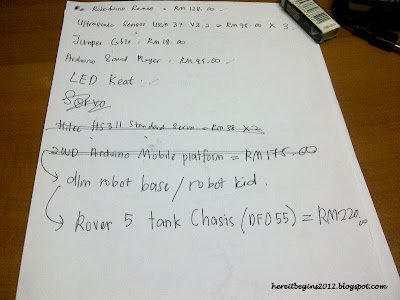 Roboduino Romeo = RM 128.00
Ultrasonic Sensor URM 37 V3.2 = RM 95.00 X 3
Jumper Cable : RM 18.00
Arduino Sound Player : RM 95.00
LED Keat
Servo
Hitec HS311 Standard Servo = RM 38 X 2
2WD Arduino Mobile platform = RM 175.00
dlm robot base / robot kid.
Rover 5 tank Chasis (DFD55) = RM220.00
hereitbegins2012.blogspot.com